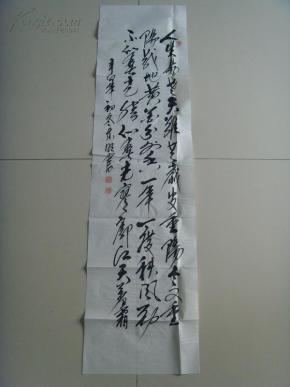 人生易老天难老岁岁重阳今又重
阳战地黄花分外香一年一度秋风劲
不似春光胜似春光寥廓江天万里霜
辛卯年初冬